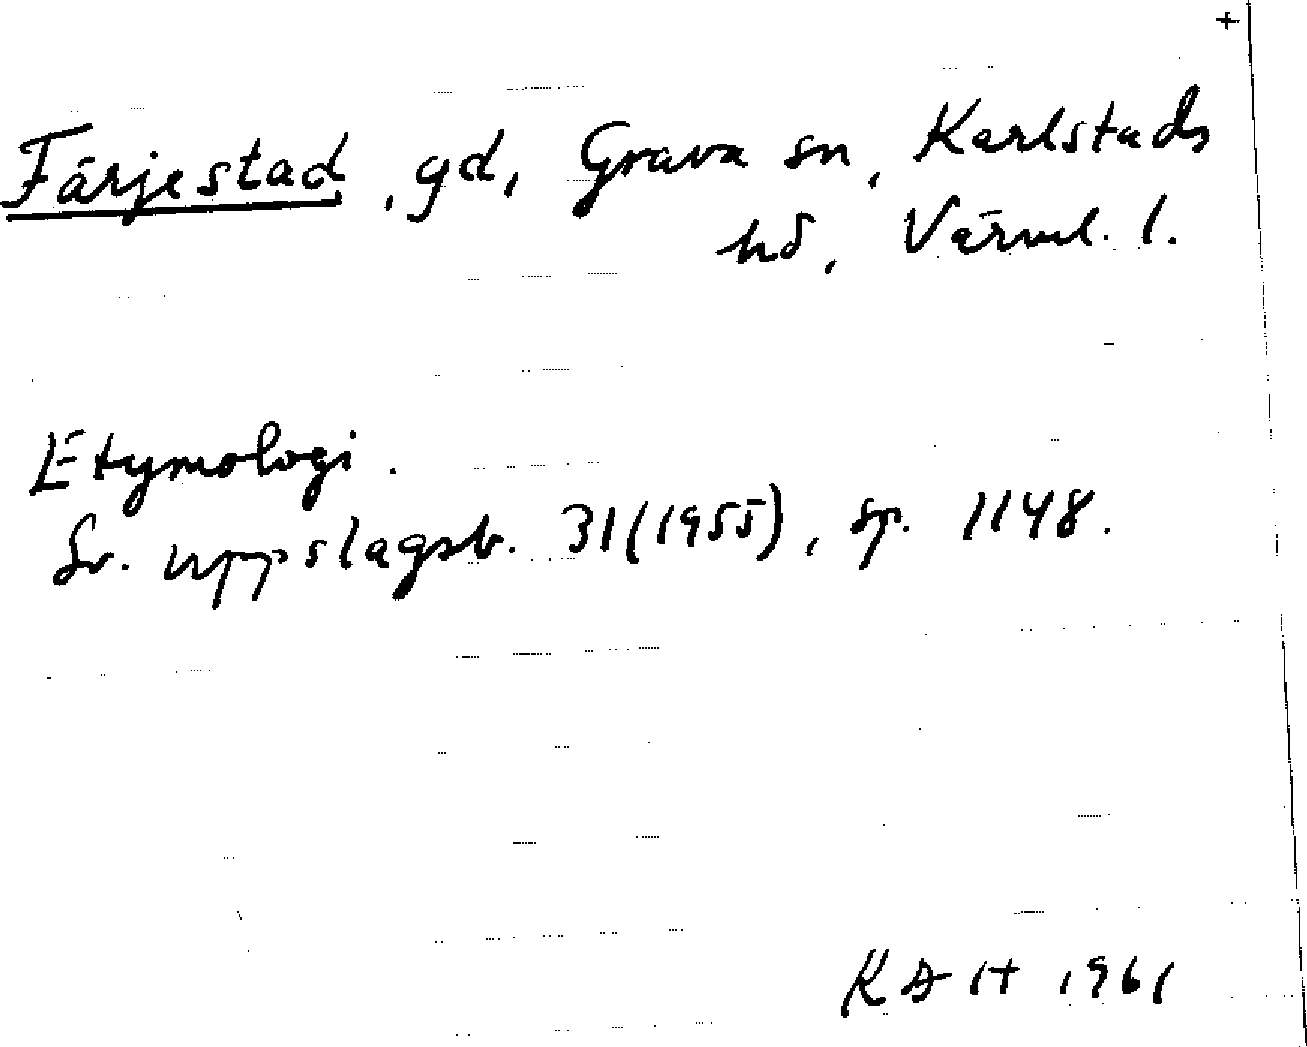 +
Färjestad, gd, Grava sn, Karlstads
hd, Värml. l.
Etymologi.
Sv. uppslagsb. 31 (1955), sp. 1148.
KAH 1961